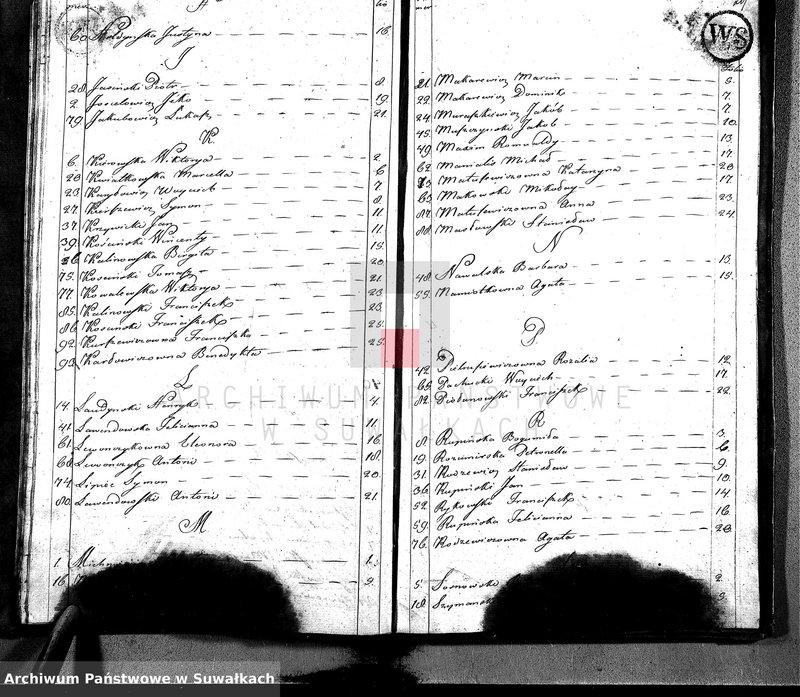 60 Justyna 16.
I
28. Jasinski Piotr 8.
2. Joscelowicz Jcko 19.
79. Jakubowicz Łukasz 21.
K
6. Kisowska Wiktorya 2.
20. Kwiatkowska Marcella 6.
23. Kuybowicz Woyciech 7.
27. Kierszewicz Symon 8.
37. Krzywicki Jan 11.
39. Kosinski Wincenty 11.
56. Kalinowska Brygita 15.
75. Kosinski Tomasz 20.
77. Kowalewska Wiktorya 21.
85. Kalinowski Franciszek 23.
86. Kosinski Franciszek 23.
92. Kurszewizowna Franciszka 25.
93. Karbowizowna Benedykta 25.
L
14. Landynski Henryk 4.
41. Lawendowska Felicianna 11.
61. Lewonczykowna Eleonora 16.
68. Lewonczyk Antoni 18.
74. Lipiec Symon 20.
80. Lawendowski Antoni 21.
M
1. 1.
16. 5.
21. Makarewicz Marcin 6.
22. Makarewicz Dominik 7.
24. Muraszkiewicz Jakób 7.
45. Muszczynski Jakob 10.
49. Mazim Romualdy 13.
62. Manialo Michał 17.
73. Matusewizowna Katarzyna 20.
63. Makowski Mikołay 17.
87. Matusewizowna Anna 23.
88. Masłowski Stanisław 24.
N
48. Nawalska Barbara 13.
55. Namiotkowna Agata 15.
P
42. Rozalia 12.
65. Pachucki Woyciech 17.
82. Piodanowski Franciszek 22.
R
8. Rupinska Bogumiła 3.
19. Rozumirska Petronella 6.
31. Rodzewicz Stanisław 9.
36. Rupinski Jan 10.
52. Rykowski Franciszek 14.
59. Rupinska Felicianna 16.
76. Rodzewizowna Agata 20.
5. Sosnowski 2.
18. Szyman 5.
WS
ARCHIWUM PAŃSTWOWE
W SUWAŁKACH
Archiwum Państwowe w Suwałkach